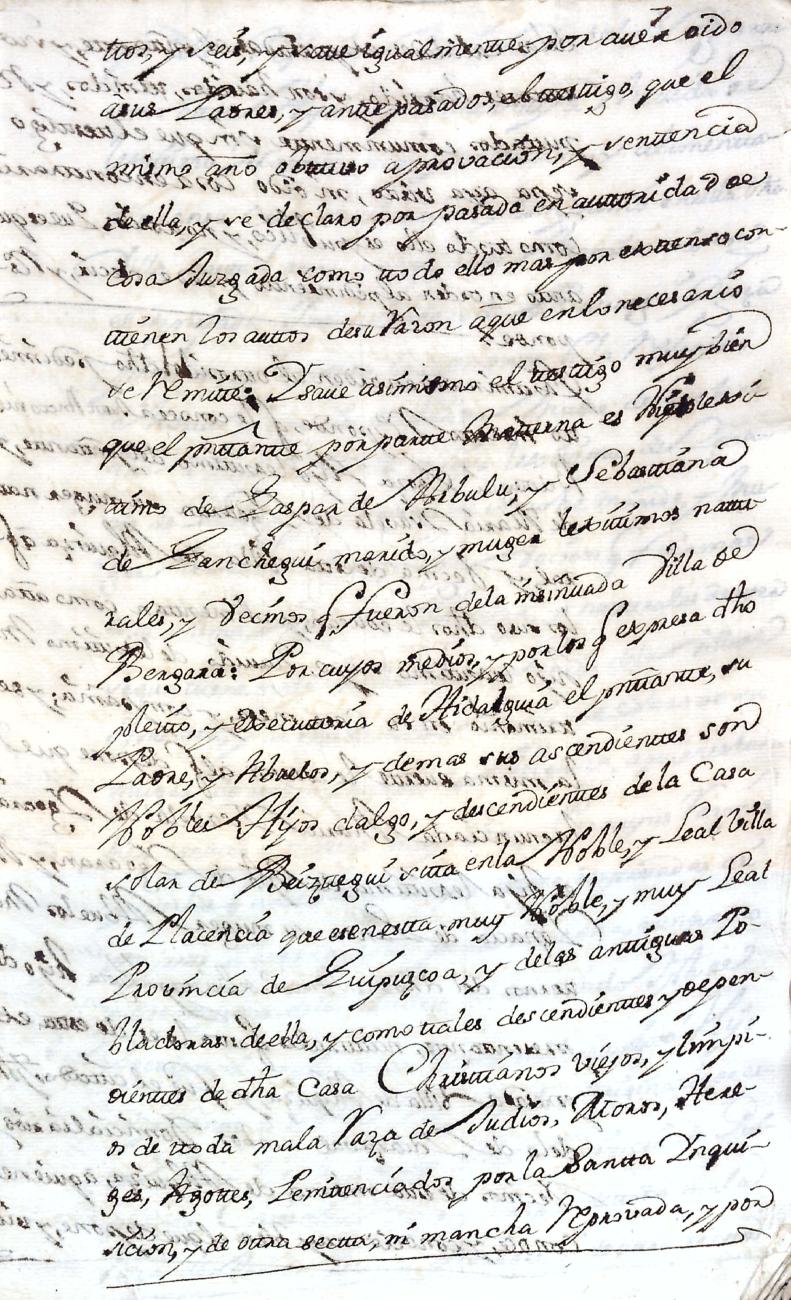 ttos, y seis, y save igualmente por aver oido
à sus Padres, y antepasados, el testigo, que el
mismo año obtuvo aprovacion, y sentencia
de ella, y se declaro por pasada en auttoridad de
cosa Juzgada como ttodo ello mas por extenso con-
ttienen los auttos de su razon aque en lo necesario
se remite: Y save asimismo el testigo muy bien
que el pnttante por parte Materna es Nieto lexi-
timo de Gaspar de Arbulu, y Sebastiana
de Ganchegui marido, y muger lexitimos natu-
rales, y Vecinos q fueron de la insinuada Villa de
Bergara: Por cuyos medios, y por los q expresa dho
pleito, y executtoria de Hidalguia el pnttante, su
Padre, y Abuelos, y demas sus ascendientes son
Nobles Hijos dalgo, y descendientes de la Casa
solar de Beiztegui sitta en la Noble, y Leal Villa
de Placencia que es en esta muy Noble, y muy Leal
Provincia de Guipuzcoa, y de las antiguas Po-
bladoras de ella, y como tales descendientes y depen-
dientes de dha Casa Christianos viejos, y limpi-
os de ttoda mala raza de Judios, Moros, Here-
ges, Agotes, Penitenciados por la Santta Ynqui-
sicion, y de otra sectta, ni mancha reprovada, y por